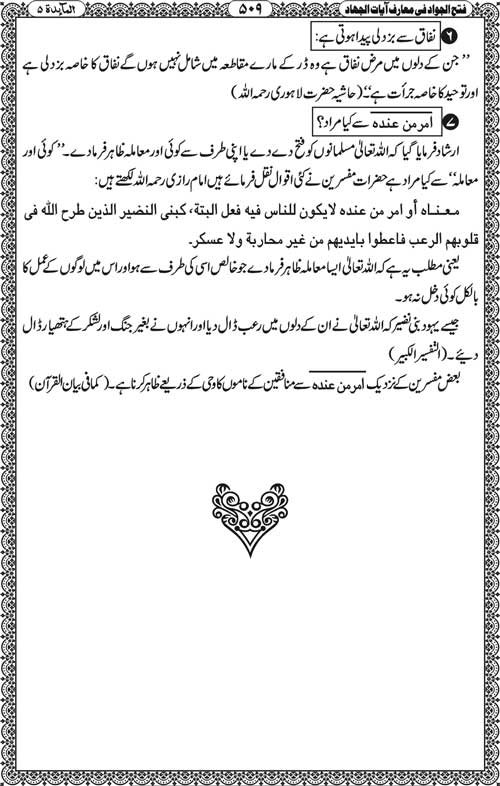 فتح الجواد فی معارف آیات الجهاد ۵۰۹ المائدۃ ۵
۶ نفاق سے بزدلی پیدا ہوتی ہے:
’’ جن کے دلوں میں مرض نفاق ہے وہ ڈر کے مارے مقاطعہ میں شامل نہیں ہوں گے نفاق کا خاصہ بزدلی ہے
اور توحید کا خاصہ جرأت ہے‘‘ (حاشیہ حضرت لاہوری رحمہ اللہ)
۷ امر من عندہ سے کیا مراد؟
ارشاد فرمایا گیا کہ اللہ تعالیٰ مسلمانوں کو فتح دے دے یا اپنی طرف سے کوئی اور معاملہ ظاہر فرمادے۔ ’’کوئی اور
معاملہ‘‘ سے کیا مراد ہے حضرات مفسرین نے کئی اقوال نقل فرمائے ہیں امام رازی رحمہ اللہ لکھتے ہیں:
معناه أو امر من عنده لایکون للناس فیه فعل البتة، کبنی النضیر الذین طرح اللّٰه فی
قلوبهم الرعب فاعطوا بایدیهم من غیر محاربة ولا عسکر۔
یعنی مطلب یہ ہے کہ اللہ تعالیٰ ایسا معاملہ ظاہر فرمادے جو خالص اسی کی طرف سے ہو اور اس میں لوگوں کے عمل کا
بالکل کوئی دخل نہ ہو۔
جیسے یہود بنی نضیر کہ اللہ تعالیٰ نے ان کے دلوں میں رعب ڈال دیا اور انہوں نے بغیر جنگ اور لشکر کے ہتھیار ڈال
دیئے۔ (التفسیر الکبیر)
بعض مفسرین کے نزدیک امر من عندہ سے منافقین کے ناموں کا وحی کے ذریعے ظاہر کرنا ہے۔ (کمافی بیان القرآن)